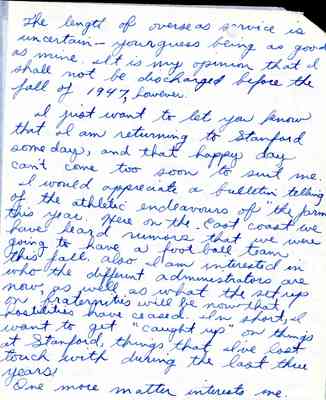 The length of overseas service is
uncertain — your guess being as good
as mine. It is my opinion that I
shall not be discharged before the
fall of 1947, however.
I just want to let you know
that I am returning to Stanford
someday, and that happy day
can't come too soon to suit me.
I would appreciate a bulletin telling
of the athletic endeavours of "the farm"
this year. Here on the East coast we
have heard rumors that we were
going to have a foot ball team
this fall. Also I am interested in
who the different administrators are
now, as well as what the set ups
on fraternities will be now that
hostilities have ceased. In short, I
want to get "caught up" on things
at Stanford, things that I've lost
touch with during the last three
years!
One more matter interests me.